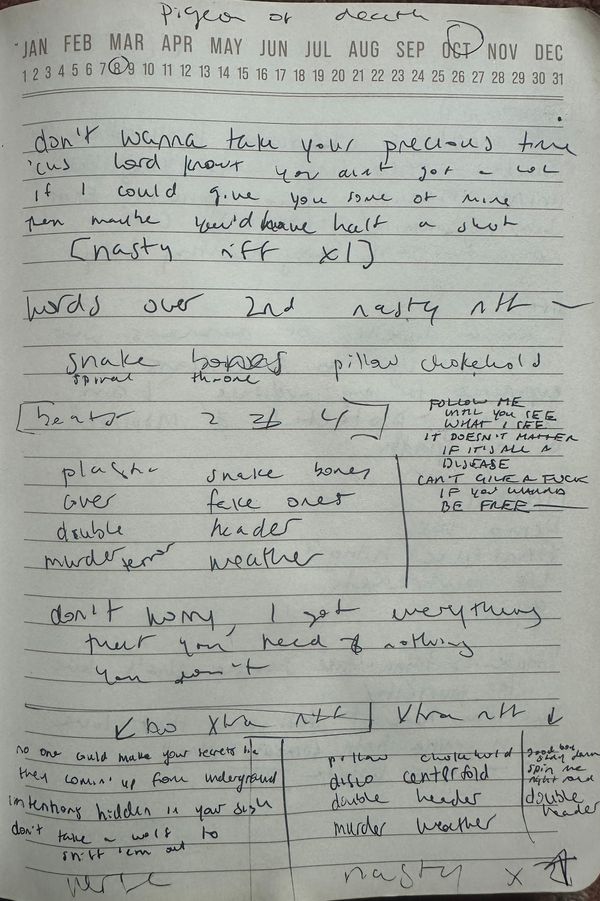 pigeon of death
JAN FEB MAR APR MAY JUN JUL AUG SEP OCT NOV DEC
1 2 3 4 5 6 7 8 9 10 11 12 13 14 15 16 17 18 19 20 21 22 23 24 25 26 27 28 29 30 31
don't wanna take your precious time
'cus lord knows you aint got a lot
if I could give you some of mine
then maybe you'd have half a shot
[nasty riff x1]
words over 2nd nasty riff —
snake bones pillow chokehold
spiral throne
[beats 2 3 4]
FOLLOW ME
UNTIL YOU SEE
WHAT I SEE
IT DOESN'T MATTER
IF IT'S ALL A
DISEASE
CAN'T GIVE A FUCK
IF YOU WANNA
BE FREE —
plastic snake bones
over fake ones
double header
murder terror weather
don't worry, I got everything
that you need & nothing
you don't
↙ no Xtra riff
Xtra riff ↓
no one could make your secrets like
they comin' up from underground
intentions hidden in your
don't take a wolf to
sniff 'em out
verse
pillow chokehold
disco centerfold
double header
murder weather
good boy
stay down
spin me
right round
double
header
nasty x